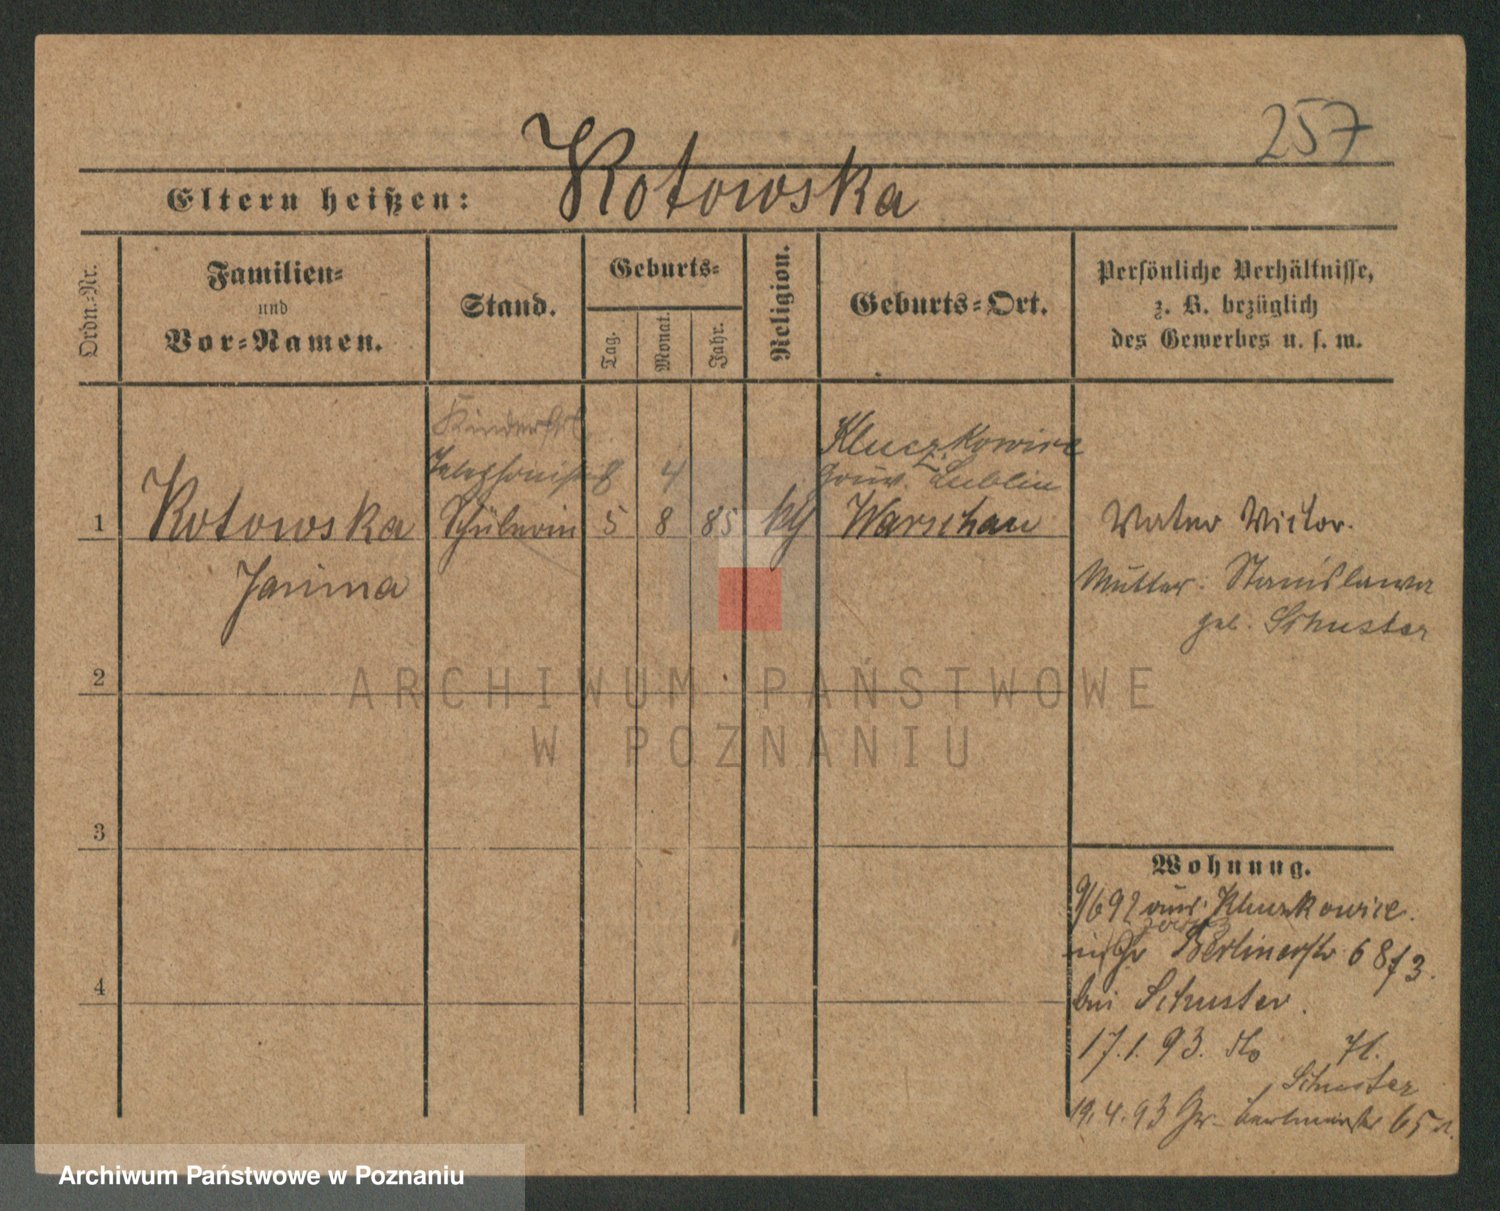 257
Eltern heißen: Kotowska
Ordn.-Nr.
Familien-
und
Vor-Namen.
Stand.
Geburts-
Tag.
Monat.
Jahr.
Religion.
Geburts-Ort.
Persönliche Verhältnisse,
z. B. bezüglich
des Gewerbes u. s. w.
Telephonist 8 4 Kluczkowice
Gouv. Lublin
1 Kotowska Schülerin 5 8 85 kth Warschau Vater Victor.
Janina
Mutter. Stanislawa
geb. Schuster
2
3
4
Wohnung.
9/6 92 aus Kluczkowice.
Berlinerstr 6
bei Schuster.
17.1.93. do 7I.
Schuster
19.4.93 Gr. Berlinerstr 65
ARCHIWUM PAŃSTWOWE
W POZNANIU
Archiwum Państwowe w Poznaniu